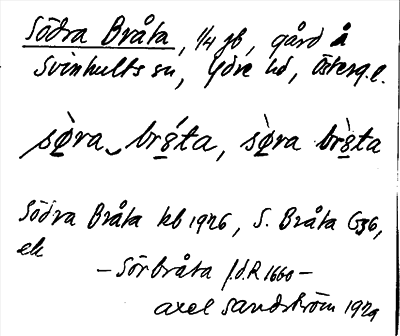 Södra Bråta, 1/4 jb, gård å
Svinhults sn, Ydre hd, Österg. l.
sø̀ra bró̤ta, sø̀ra brò̤ta
Södra Bråta kb 1926, S. Bråta G36,
ek
– Sörbråta f.d.R 1660 –
Axel Sandström 1929